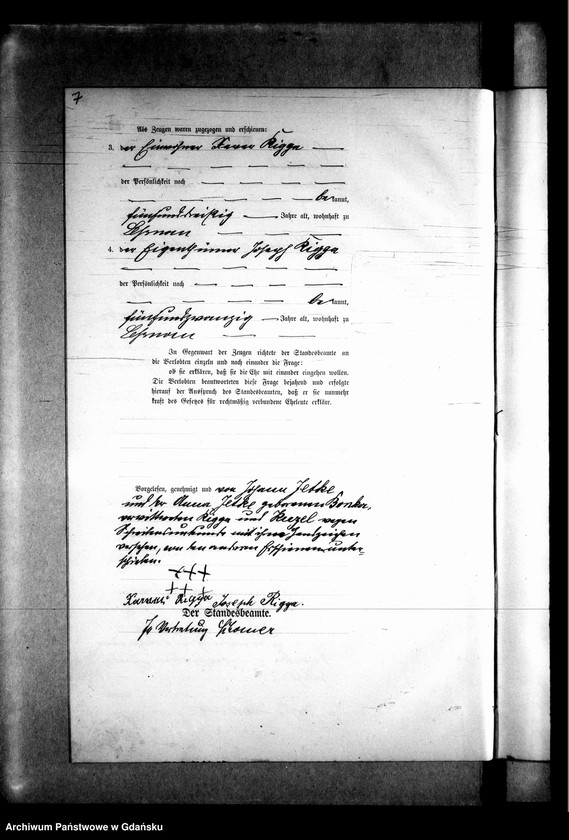 7
Als Zeugen waren zugezogen und erschienen:
3. der Einwohner Xaver Rigga
der Persönlichkeit nach
bekannt,
fünfunddreißig Jahre alt, wohnhaft zu
4. der Eigenthümer Joseph Rigga
der Persönlichkeit nach
bekannt,
fünfundzwanzig Jahre alt, wohnhaft zu
In Gegenwart der Zeugen richtete der Standesbeamte an
die Verlobten einzeln und nach einander die Frage:
ob sie erklären, daß sie die Ehe mit einander eingehen wollen.
Die Verlobten beantworteten diese Frage bejahend und erfolgte
hierauf der Ausspruch des Standesbeamten, daß er sie nunmehr
kraft des Gesetzes für rechtmäßig verbundene Eheleute erkläre.
Vorgelesen, genehmigt und von Johann Jelke
und der Anna Jelke geborenen
verwittweten Rigga und wegen
Schreibensunkunde mit ihren Handzeichen
versehen, von den anderen Erschienenen unter-
schrieben.
+++
+++
Rigga Joseph Rigga.
Der Standesbeamte.
In Vertretung
Archiwum Państwowe w Gdańsku